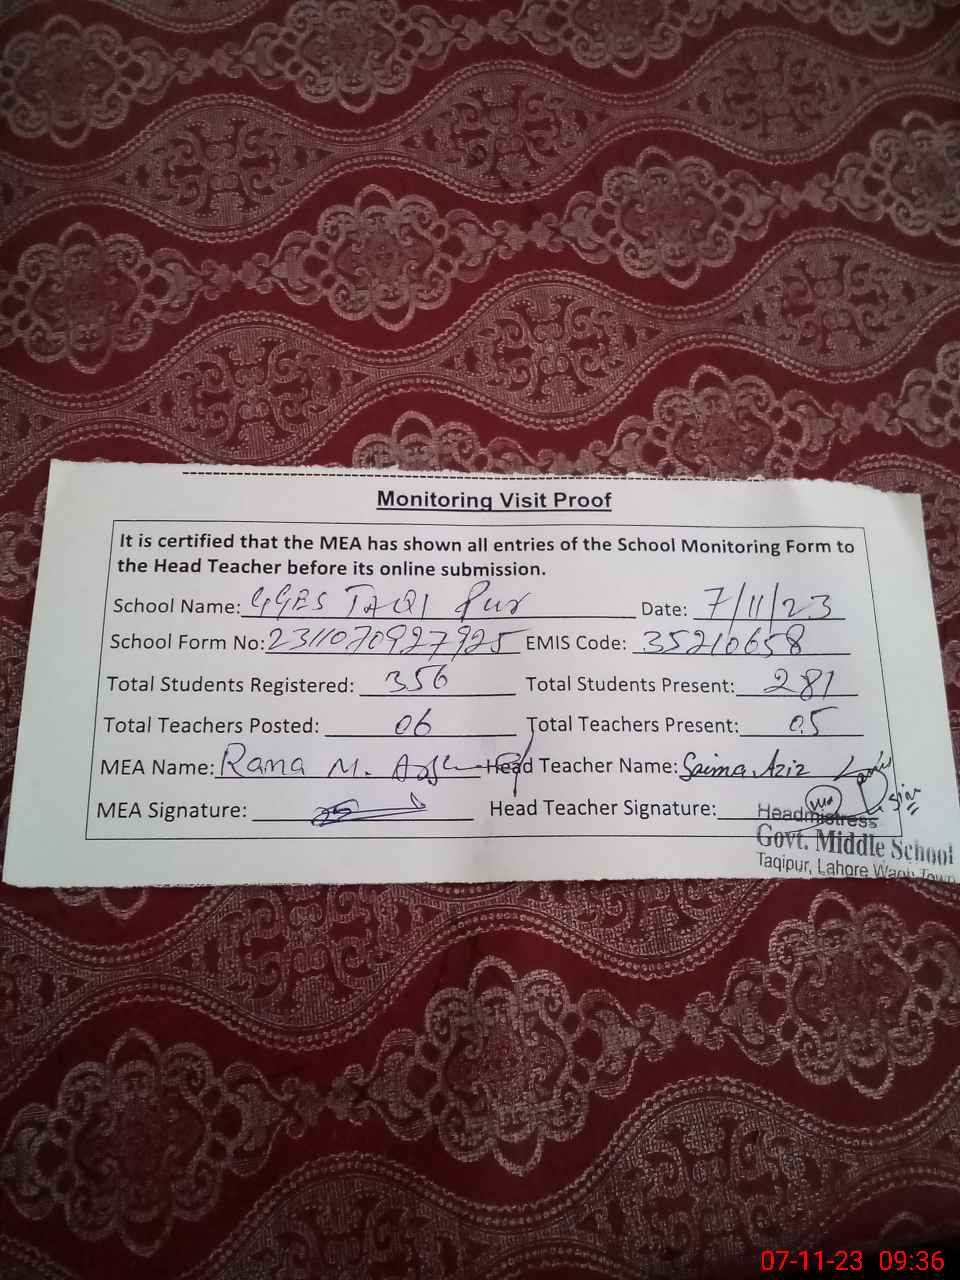 Monitoring Visit Proof
It is certified that the MEA has shown all entries of the School Monitoring Form to
the Head Teacher before its online submission.
School Name: GGES TAQI Pur Date: 7/11/23
School Form No: 2311070927925 EMIS Code: 35210658
Total Students Registered: 356 Total Students Present: 281
Total Teachers Posted: 06 Total Teachers Present: 05
MEA Name: Rana M. Head Teacher Name: Saima Aziz
MEA Signature: Head Teacher Signature:
Headmistress
Govt. Middle School
Taqipur, Lahore Wagh Town
07-11-23 09:36